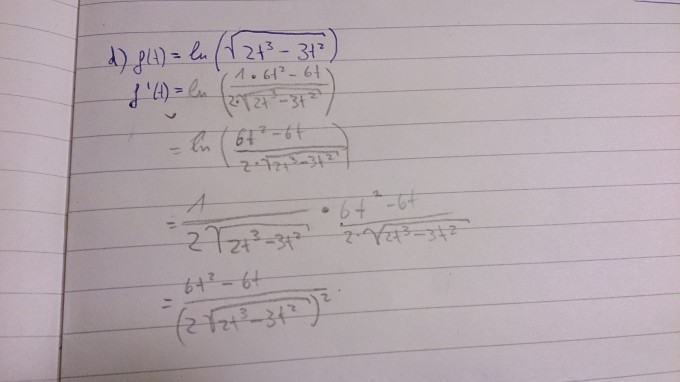 d) f(t) = ln(√(2t³ - 3t²))
f'(t) = ln((1 • 6t² - 6t)/(2•√(2t³-3t²)))
= ln((6t² - 6t)/(2•√(2t³-3t²)))
= 1/(2√(2t³-3t²)) • (6t² - 6t)/(2•√(2t³-3t²))
= (6t² - 6t)/(2√(2t³-3t²))²